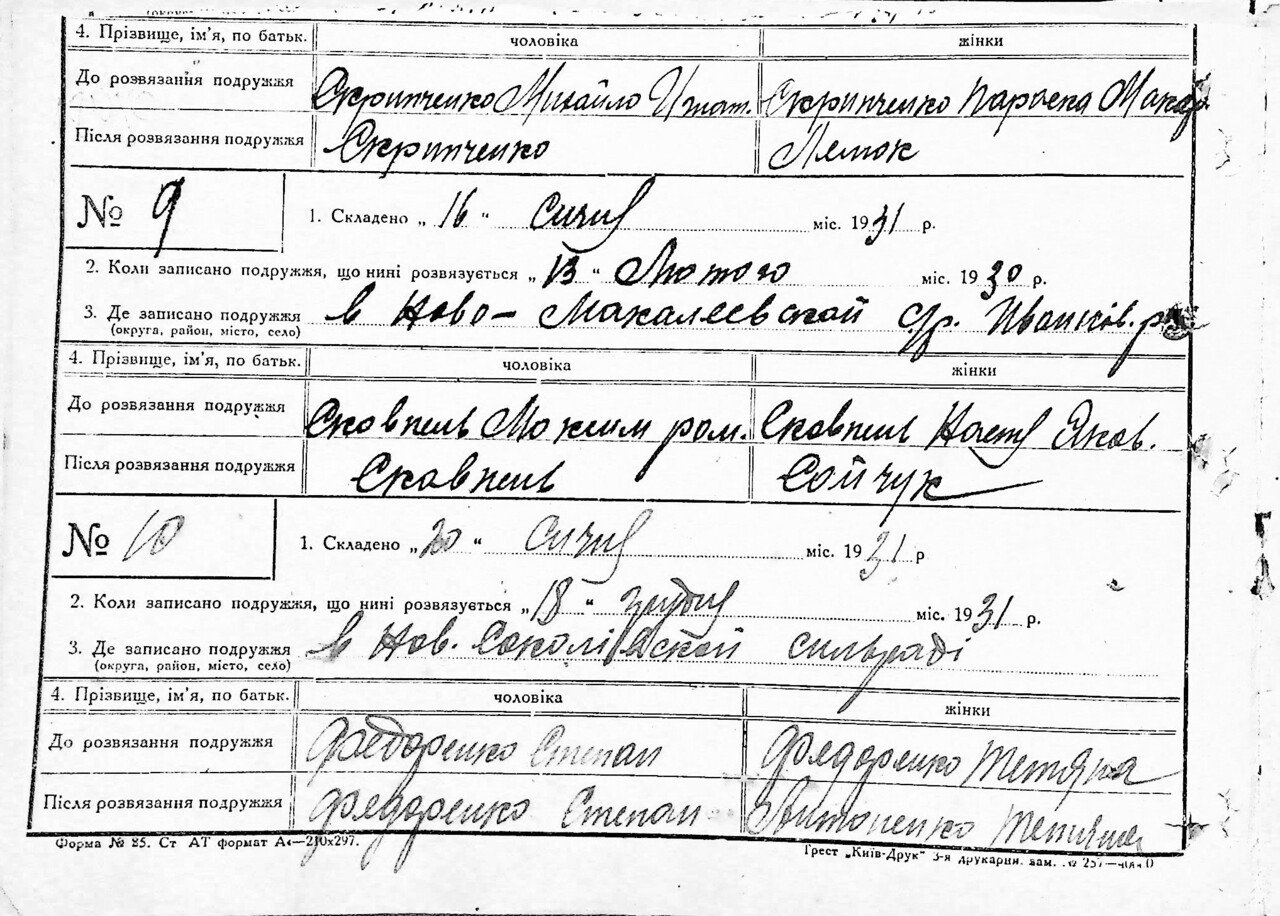 4. Прізвище, ім'я, по батьк. чоловіка жінки
До розвязання подружжя Скрипченко Михайло Игнат. Скрипченко Параска Макар
Після розвязання подружжя Скрипченко Лемок
№ 9 1. Складено „16“ Січня міс. 1931 р.
2. Коли записано подружжя, що нині розвязується „13“ Лютого міс. 1930 р.
3. Де записано подружжя в Ново-Макалеевской с/р. Иванков. р
(округа, район, місто, село)
4. Прізвище, ім'я, по батьк. чоловіка жінки
До розвязання подружжя Сковпень Моксим ром. Сковпень Настя Яков.
Після розвязання подружжя Сковпень Сойчук
№ 10 1. Складено „20“ Січня міс. 1931 р
2. Коли записано подружжя, що нині розвязується „18“ грудня міс. 1931 р.
3. Де записано подружжя в Нов. Соколівской сільраді
(округа, район, місто, село)
4. Прізвище, ім'я, по батьк. чоловіка жінки
До розвязання подружжя Федоренко Степан Федоренко Тетяна
Після розвязання подружжя Федоренко Степан Антоненко Тетяна
Форма № 85. Ст АТ формат А4—210х297.
Трест „Київ-Друк“ 3-я друкарня. зам. № 257